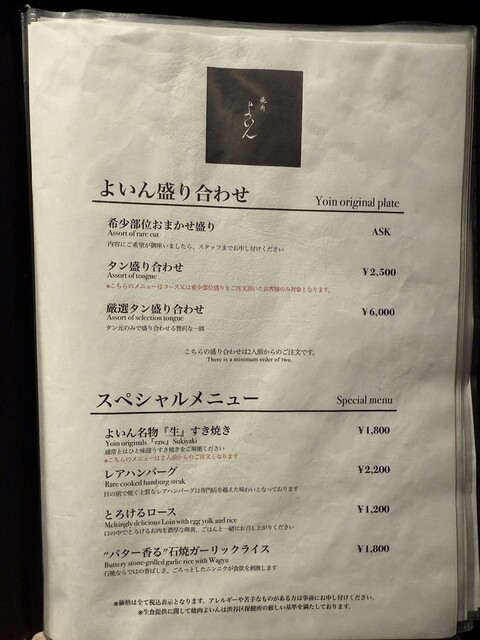 焼肉
よいん
よいん盛り合わせ Yoin original plate
希少部位おまかせ盛り ASK
Assort of rare cut
内容にご希望が御座いましたら、スタッフまでお申し付けください
タン盛り合わせ ¥2,500
Assort of tongue
※こちらのメニューはコース又は希少部位盛りをご注文頂いたお客様のみ対象となります。
厳選タン盛り合わせ ¥6,000
Assort of selection tongue
タン元のみで盛り合わせる贅沢な一皿
こちらの盛り合わせは2人前からのご注文です。
There is a minimum order of two.
スペシャルメニュー Special menu
よいん名物『生』すき焼き ¥1,800
Yoin originals『raw』Sukiyaki
通常とはひと味違うすき焼きをご堪能ください
※こちらのメニューは2人前からのご注文となります
レアハンバーグ ¥2,200
Rare cooked hamburg steak
目の前で焼く上質なレアハンバーグは専門店を越えた味わいとなっております
とろけるロース ¥1,200
Meltingly delicious Loin with egg yolk and rice
口の中でとろけるお肉を濃厚な卵黄、ごはんと一緒にお召し上がりください
"バター香る"石焼ガーリックライス ¥1,800
Buttery stone-grilled garlic rice with Wagyu
石焼ならではの香ばしさ、ごろっとしたニンニクが食欲を刺激します
※価格は全て税込表示となります。アレルギーや苦手なものがある方は事前にお申し付けください。
※生食提供に関して焼肉よいんは渋谷区保健所の厳しい基準を満たしております。